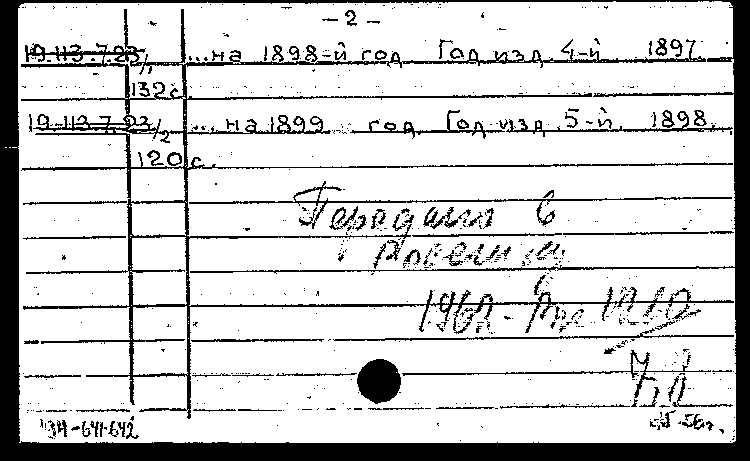 – 2 –
19.113.7.23/1 ...на 1898-й год Год изд. 4-й. 1897.
132 с.
19.113.7.23/2 ... на 1899 год Год изд. 5-й. 1898.
120 с.
Передана в
1962
34-641-642